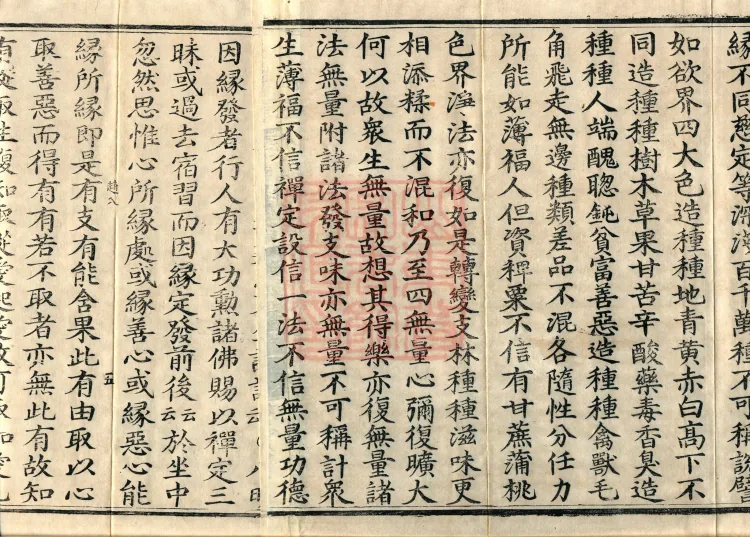 緣不同慈定等深淺百千萬種不可稱說譬
如欲界四大色造種種地青黃赤白高下不
同造種種樹木草果甘苦辛酸藥毒香臭造
種種人端醜聦鈍貧富善惡造種種禽獸毛
角飛走無邊種類差品不混各隨性分任力
所能如薄福人但資稗粟不信有甘蔗蒲桃
色界淨法亦復如是轉變支林種種滋味更
相添糅而不混和乃至四無量心彌復曠大
何以故衆生無量故想其得樂亦復無量諸
法無量附諸法發支味亦無量不可稱計衆
生薄福不信禪定設信一法不信無量功德
因緣發者行人有大功勳諸佛賜以禪定三
昧或過去宿習而因緣定發前後云云於坐中
忽然思惟心所緣處或緣善心或緣惡心能
緣所緣即是有支有能含果此有由取以心
五
取善惡而得有有若不取者亦無此有故知